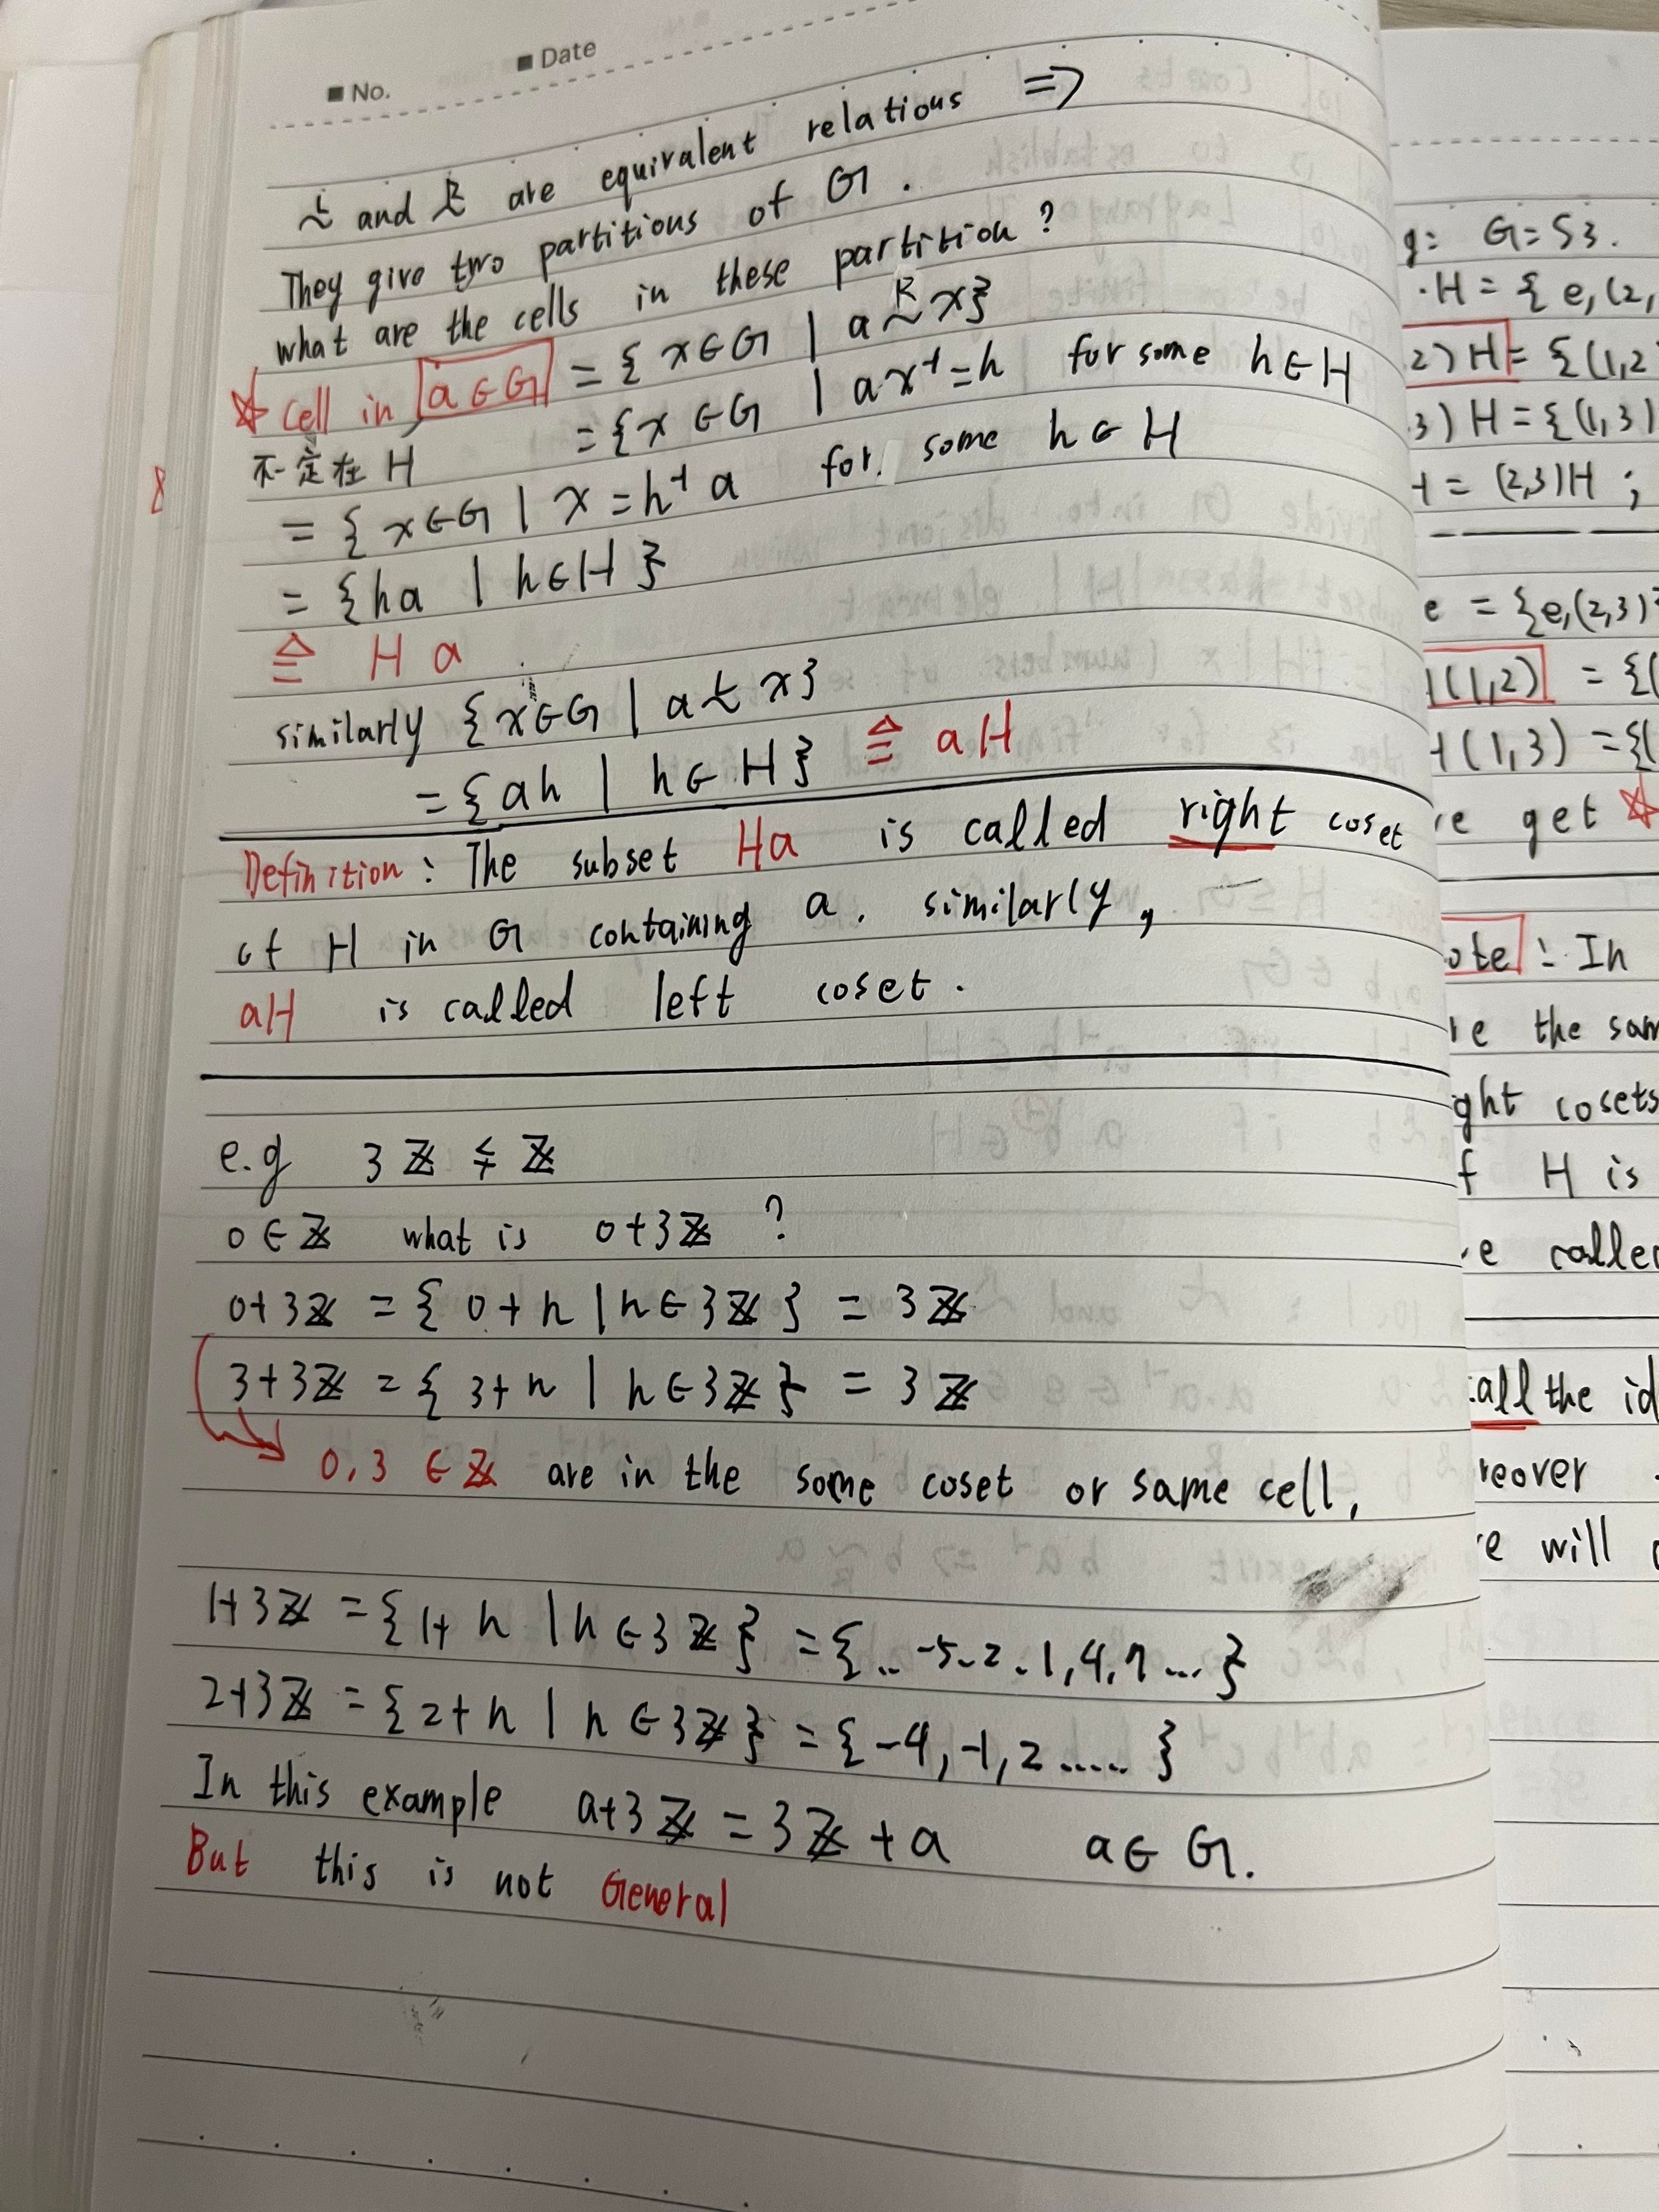 ■ No. ■ Date
~L and ~R are equivalent relations ⇒
They give two partitions of G.
what are the cells in these partition?
☆ cell in a∈G = { x∈G | a ~R x}
不一定在 H = {x ∈G | ax⁻¹=h for some h∈H
8
= { x∈G | x = h⁻¹ a for some h∈H
= {ha | h∈H }
≙ Ha
similarly {x∈G | a ~L x}
= {ah | h∈H} ≙ aH
Definition: The subset Ha is called right coset
of H in G containing a. similarly,
aH is called left coset.
e.g 3ℤ ≨ ℤ
0∈ℤ what is 0+3ℤ ?
0+3ℤ = { 0+h | h∈3ℤ } = 3ℤ
3+3ℤ = { 3+h | h∈3ℤ } = 3ℤ
0, 3 ∈ℤ are in the some coset or same cell,
1+3ℤ = {1+ h | h∈3ℤ} = {.. -5.-2.1,4,7 ... }
2+3ℤ = {2+h | h∈3ℤ} = {-4,-1,2 ..... }
In this example a+3ℤ = 3ℤ+a a∈G.
But this is not General
g: G=S3.
·H = { e, (2,
2)H = {(1,2
3)H = {(1,3)
= (2,3)H ;
e = {e,(2,3)
(1,2) = {(
(1,3) = {(
e get ☆
ote: In
e the sam
ght cosets
f H is
e called
call the id
reover
e will